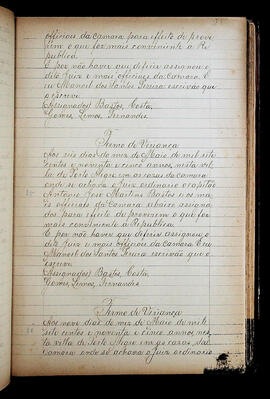 officiaes da camara para effeito de prove-
rem o que for mais conveniente a Re
publica.
E por não haver que deferir assignou o
dito Juiz e mais officiaes da camara. E
eu Manoel dos Santos Pereira escrivão que
o escrevi.
Assignados) Bastos, Costa,
Gomes, Lemos, Fernandes.
Termo de Vriança
Aos seis dias do mez de Maio de mil sete
centos e noventa e cinco annos, nesta vil-
la de Porto Alegre em as casas da camara
onde se achava o Juiz ordinario o capitão
Antonio José Martins Bastos e os ma
is officiaes da camara abaixo assigna
dos para effeito de proverem o que for
mais conveniente a Republica.
E por não haver que deferir assignou o
dito Juiz e mais officiaes da camara E eu
Manoel dos Santos Pereira escrivão que o
escrevi.
Assignados) Bastos, Costa,
Gomes, Lemos, Fernandes
Termo de Vriança
Aos nove dias do mez de Maio de mil e
sete centos e noventa e cinco annos, nes-
ta villa de Porto Alegre em as casas da
camara onde se achava o Juiz ordinario